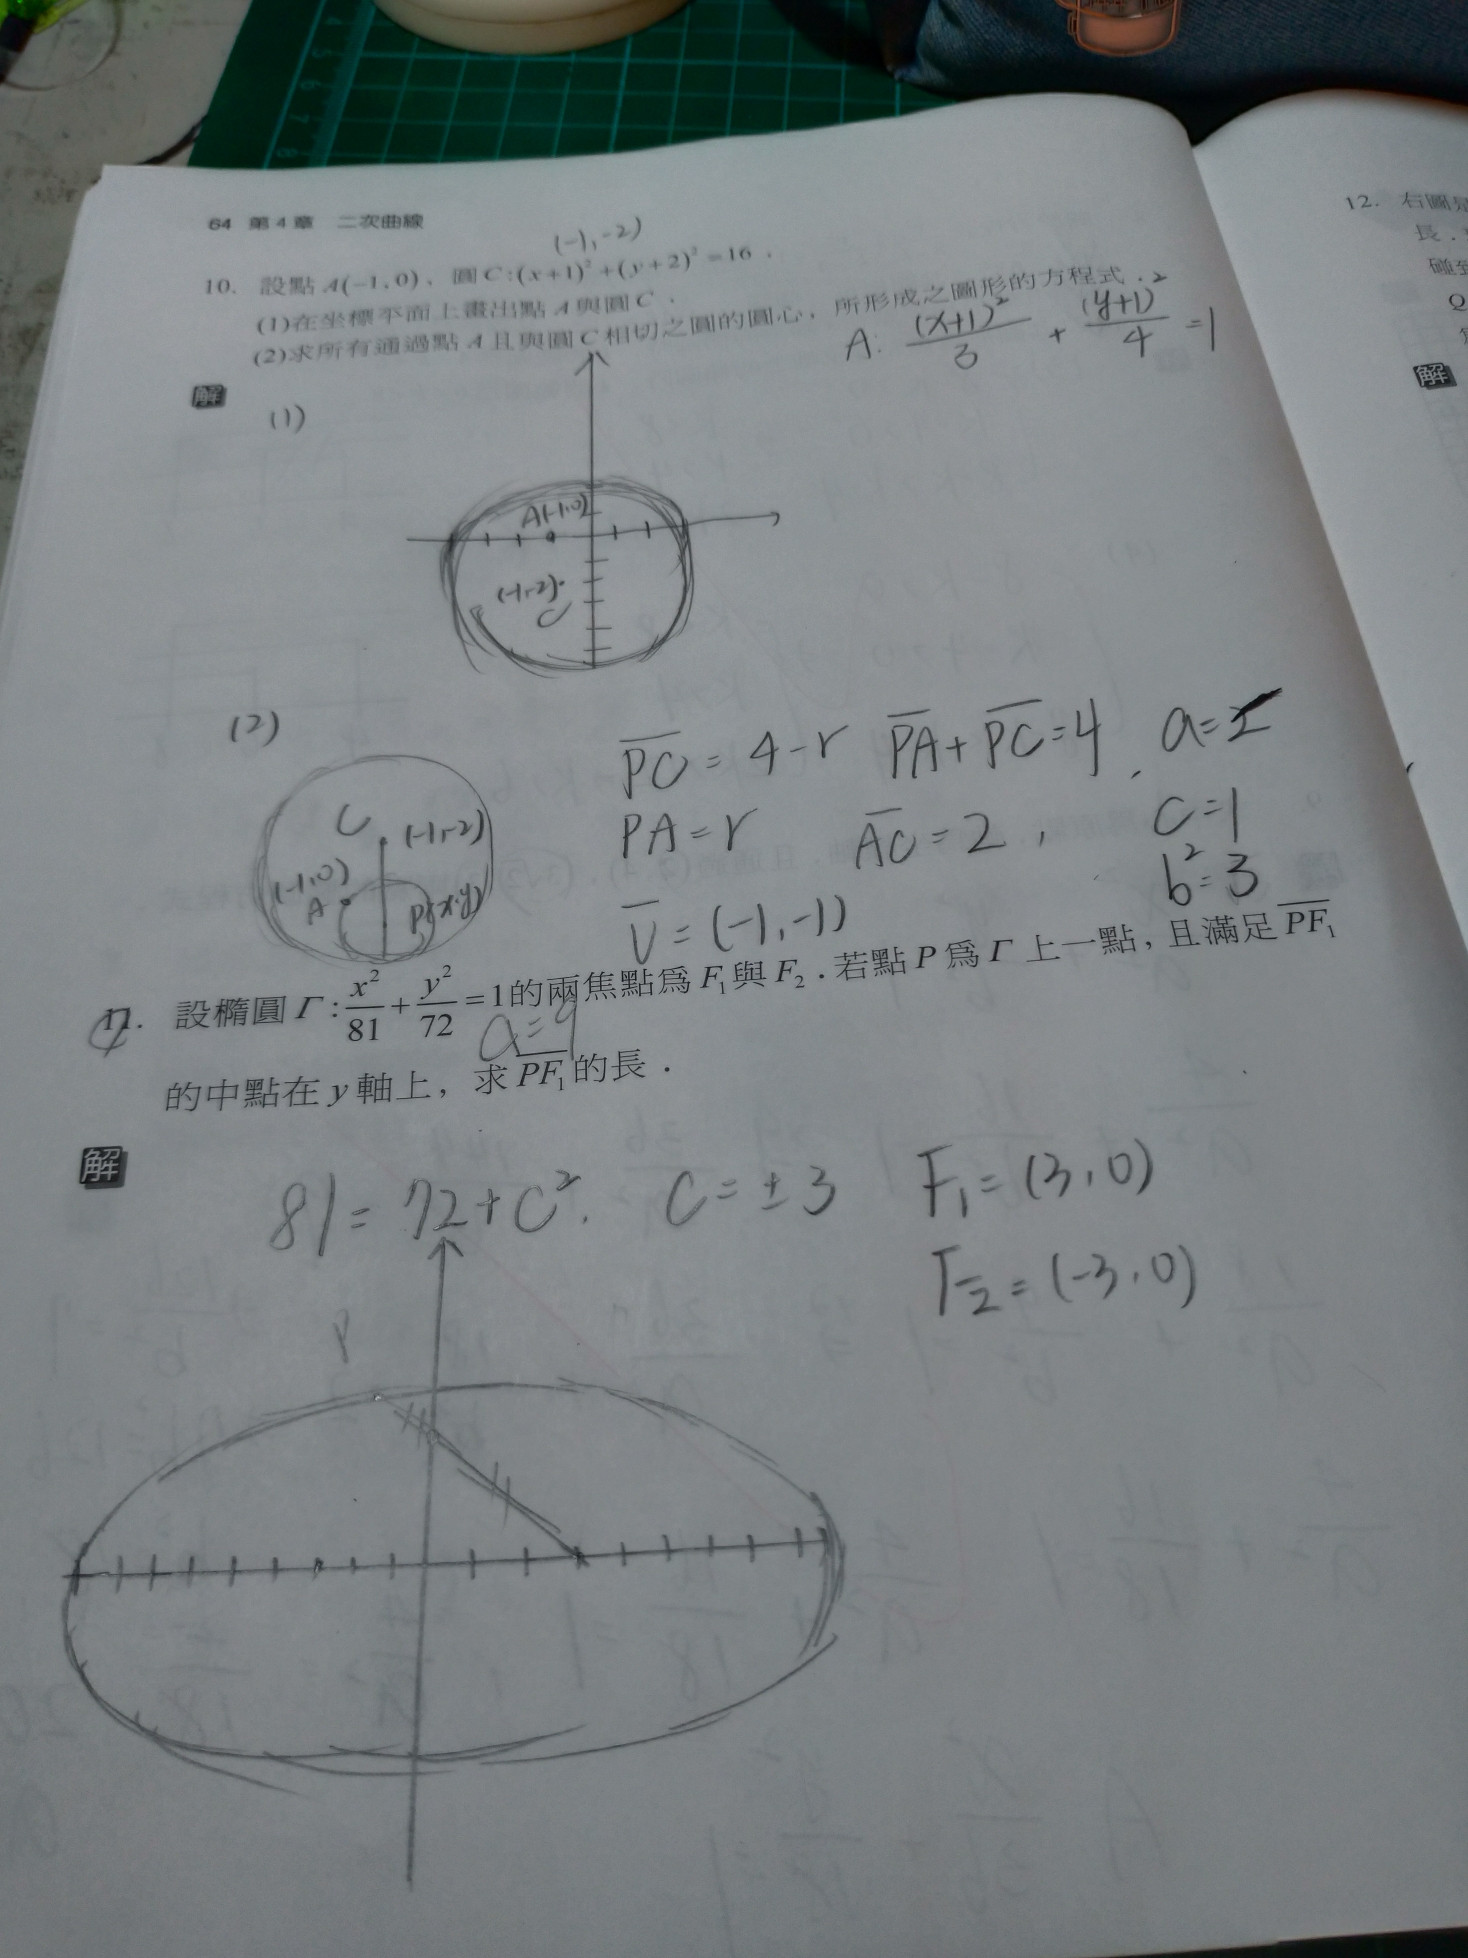 64 第4章 二次曲線
(-1,-2)
10. 設點A(-1,0)、圓C:(x+1)²+(y+2)²=16.
(1)在坐標平面上畫出點A與圓C.
(2)求所有通過點A且與圓C相切之圓的圓心,所形成之圖形的方程式.
A: (x+1)²/3 + (y+1)²/4 = 1
解
(1)
A(-1,0)
(-1,-2)
C
(2)
PC = 4-r PA+PC=4, a=2
PA=r AC=2, c=1
b²=3
V=(-1,-1)
C (-1,-2)
(-1,0)
A P(x,y)
11. 設橢圓Γ:x²/81+y²/72=1的兩焦點爲F₁與F₂.若點P爲Γ上一點,且滿足PF₁
a=9
的中點在y軸上,求PF₁的長.
解
81=72+C². C=±3 F₁=(3,0)
F₂=(-3,0)
P
12. 右圖是
長.
碰到
Q
解